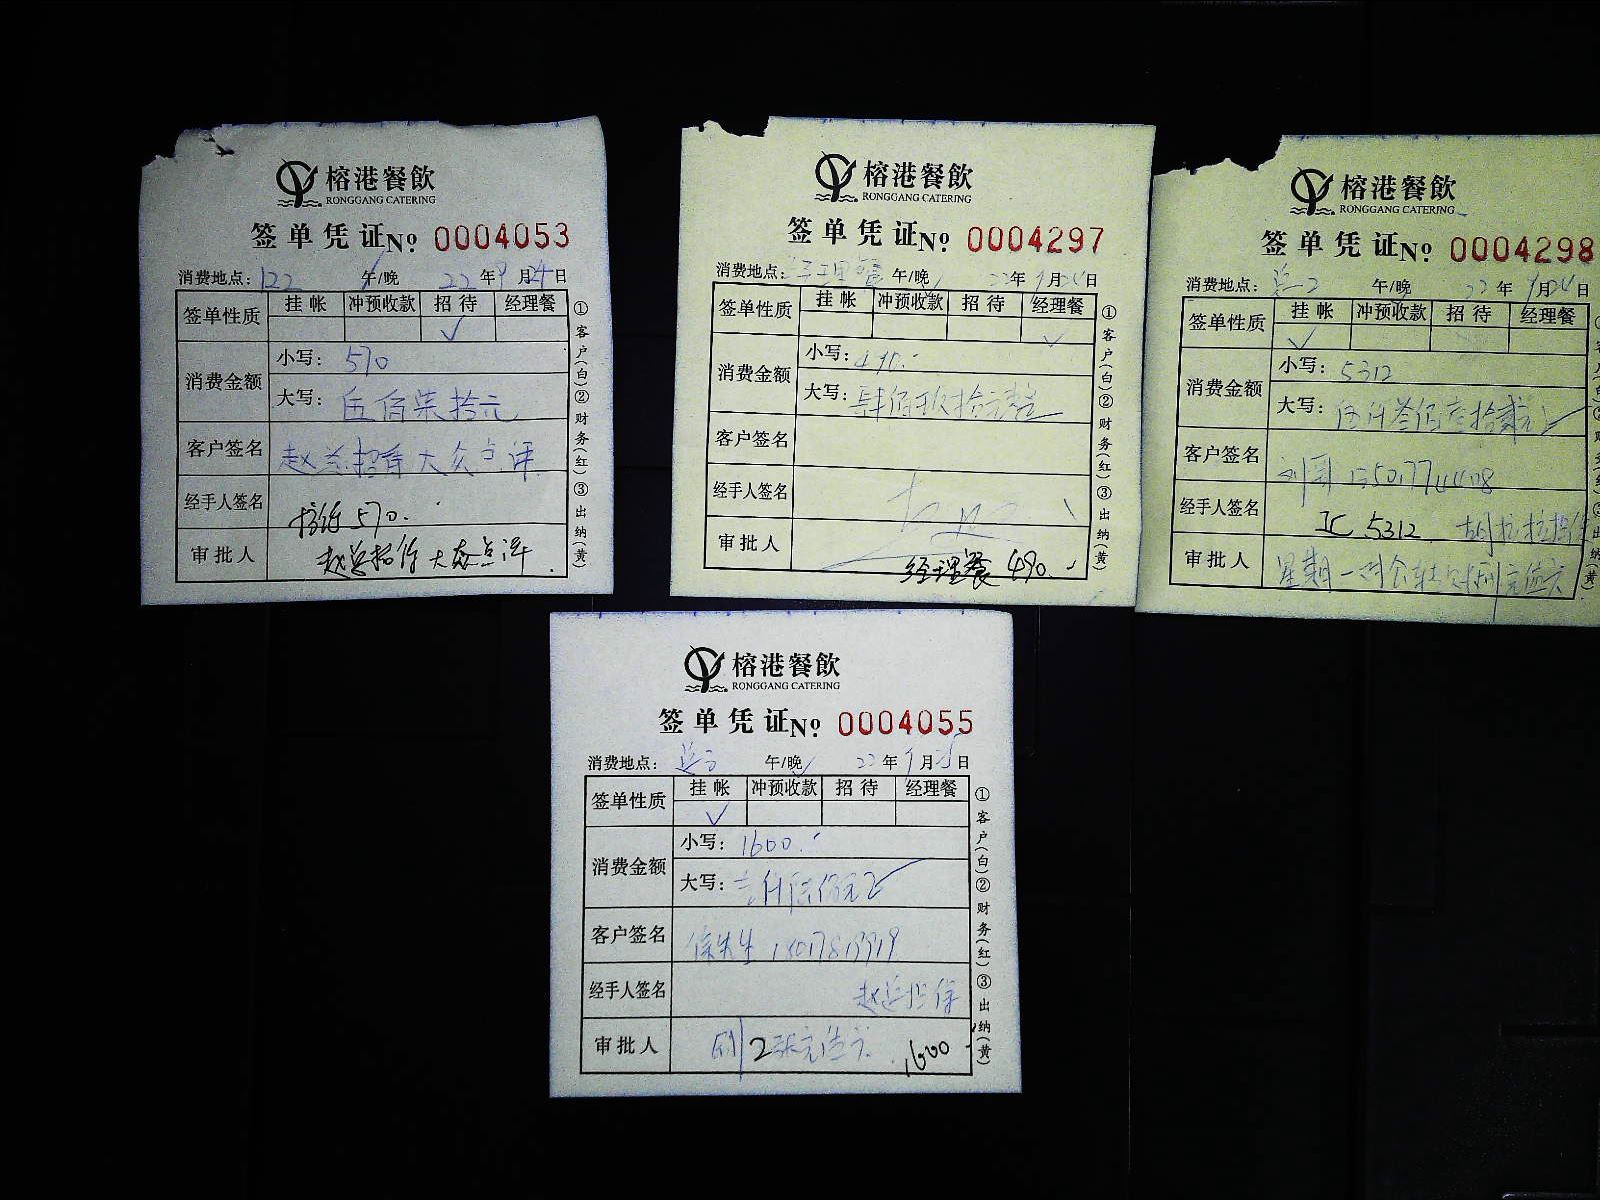 榕港餐飲
RONGGANG CATERING
签单凭证 No 0004053
消费地点: 122 午/晚 22年9月24日
签单性质 挂帐 冲预收款 招待 经理餐
✓
消费金额 小写: 570
大写: 伍佰柒拾元
客户签名 赵总招待大众点评
经手人签名 招待570.
审批人 赵总招待大众点评.
①客户(白)②财务(红)③出纳(黄)
榕港餐飲
RONGGANG CATERING
签单凭证 No 0004297
消费地点: 经理餐 午/晚 22年9月24日
签单性质 挂帐 冲预收款 招待 经理餐
✓
消费金额 小写: 490.
大写: 肆佰玖拾元整
客户签名
经手人签名
审批人 经理餐 490.
①客户(白)②财务(红)③出纳(黄)
榕港餐飲
RONGGANG CATERING
签单凭证 No 0004298
消费地点: 午/晚 22年9月24日
签单性质 挂帐 冲预收款 招待 经理餐
✓
消费金额 小写: 5312
大写: 伍仟叁佰壹拾贰元
客户签名
经手人签名 5312
审批人 星期一
榕港餐飲
RONGGANG CATERING
签单凭证 No 0004055
消费地点: 午/晚 22年9月25日
签单性质 挂帐 冲预收款 招待 经理餐
✓
消费金额 小写: 1600.
大写: 壹仟陆佰元
客户签名 徐先生
经手人签名 赵总担保
审批人 1600
①客户(白)②财务(红)③出纳(黄)